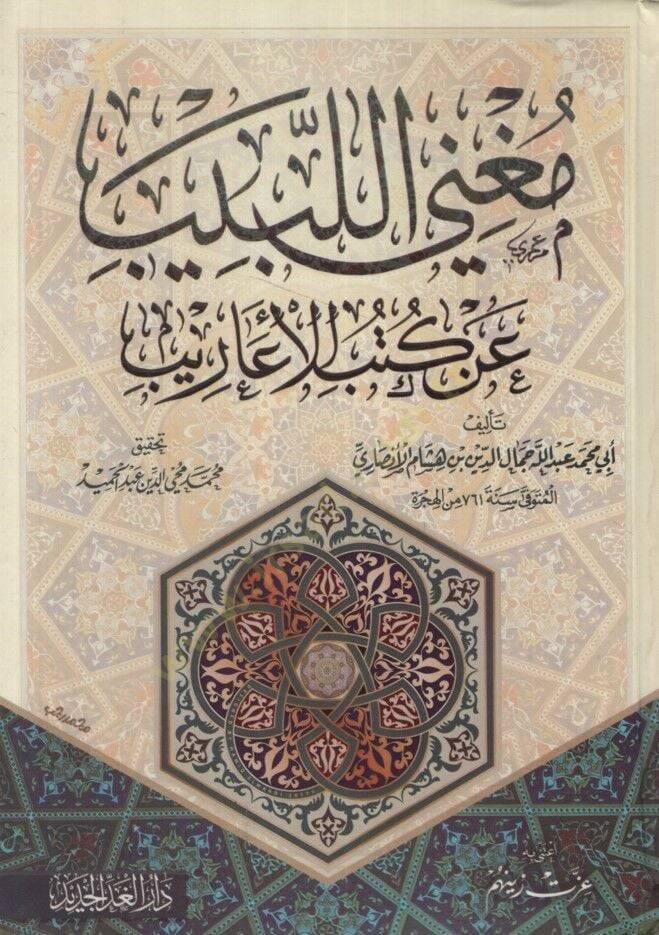 مُغْنِي اللَّبِيبْ
عَنْ كُتُبِ الأَعَارِيبْ
تأليف
أبي محمد عبد الله جمال الدين بن هشام الأنصاريّ
المتوفى سنة ٧٦١ من الهجرة
تحقيق
محمد محي الدين عبد الحميد
اعتنى به
عزت زينهم
دار الغد الجديد